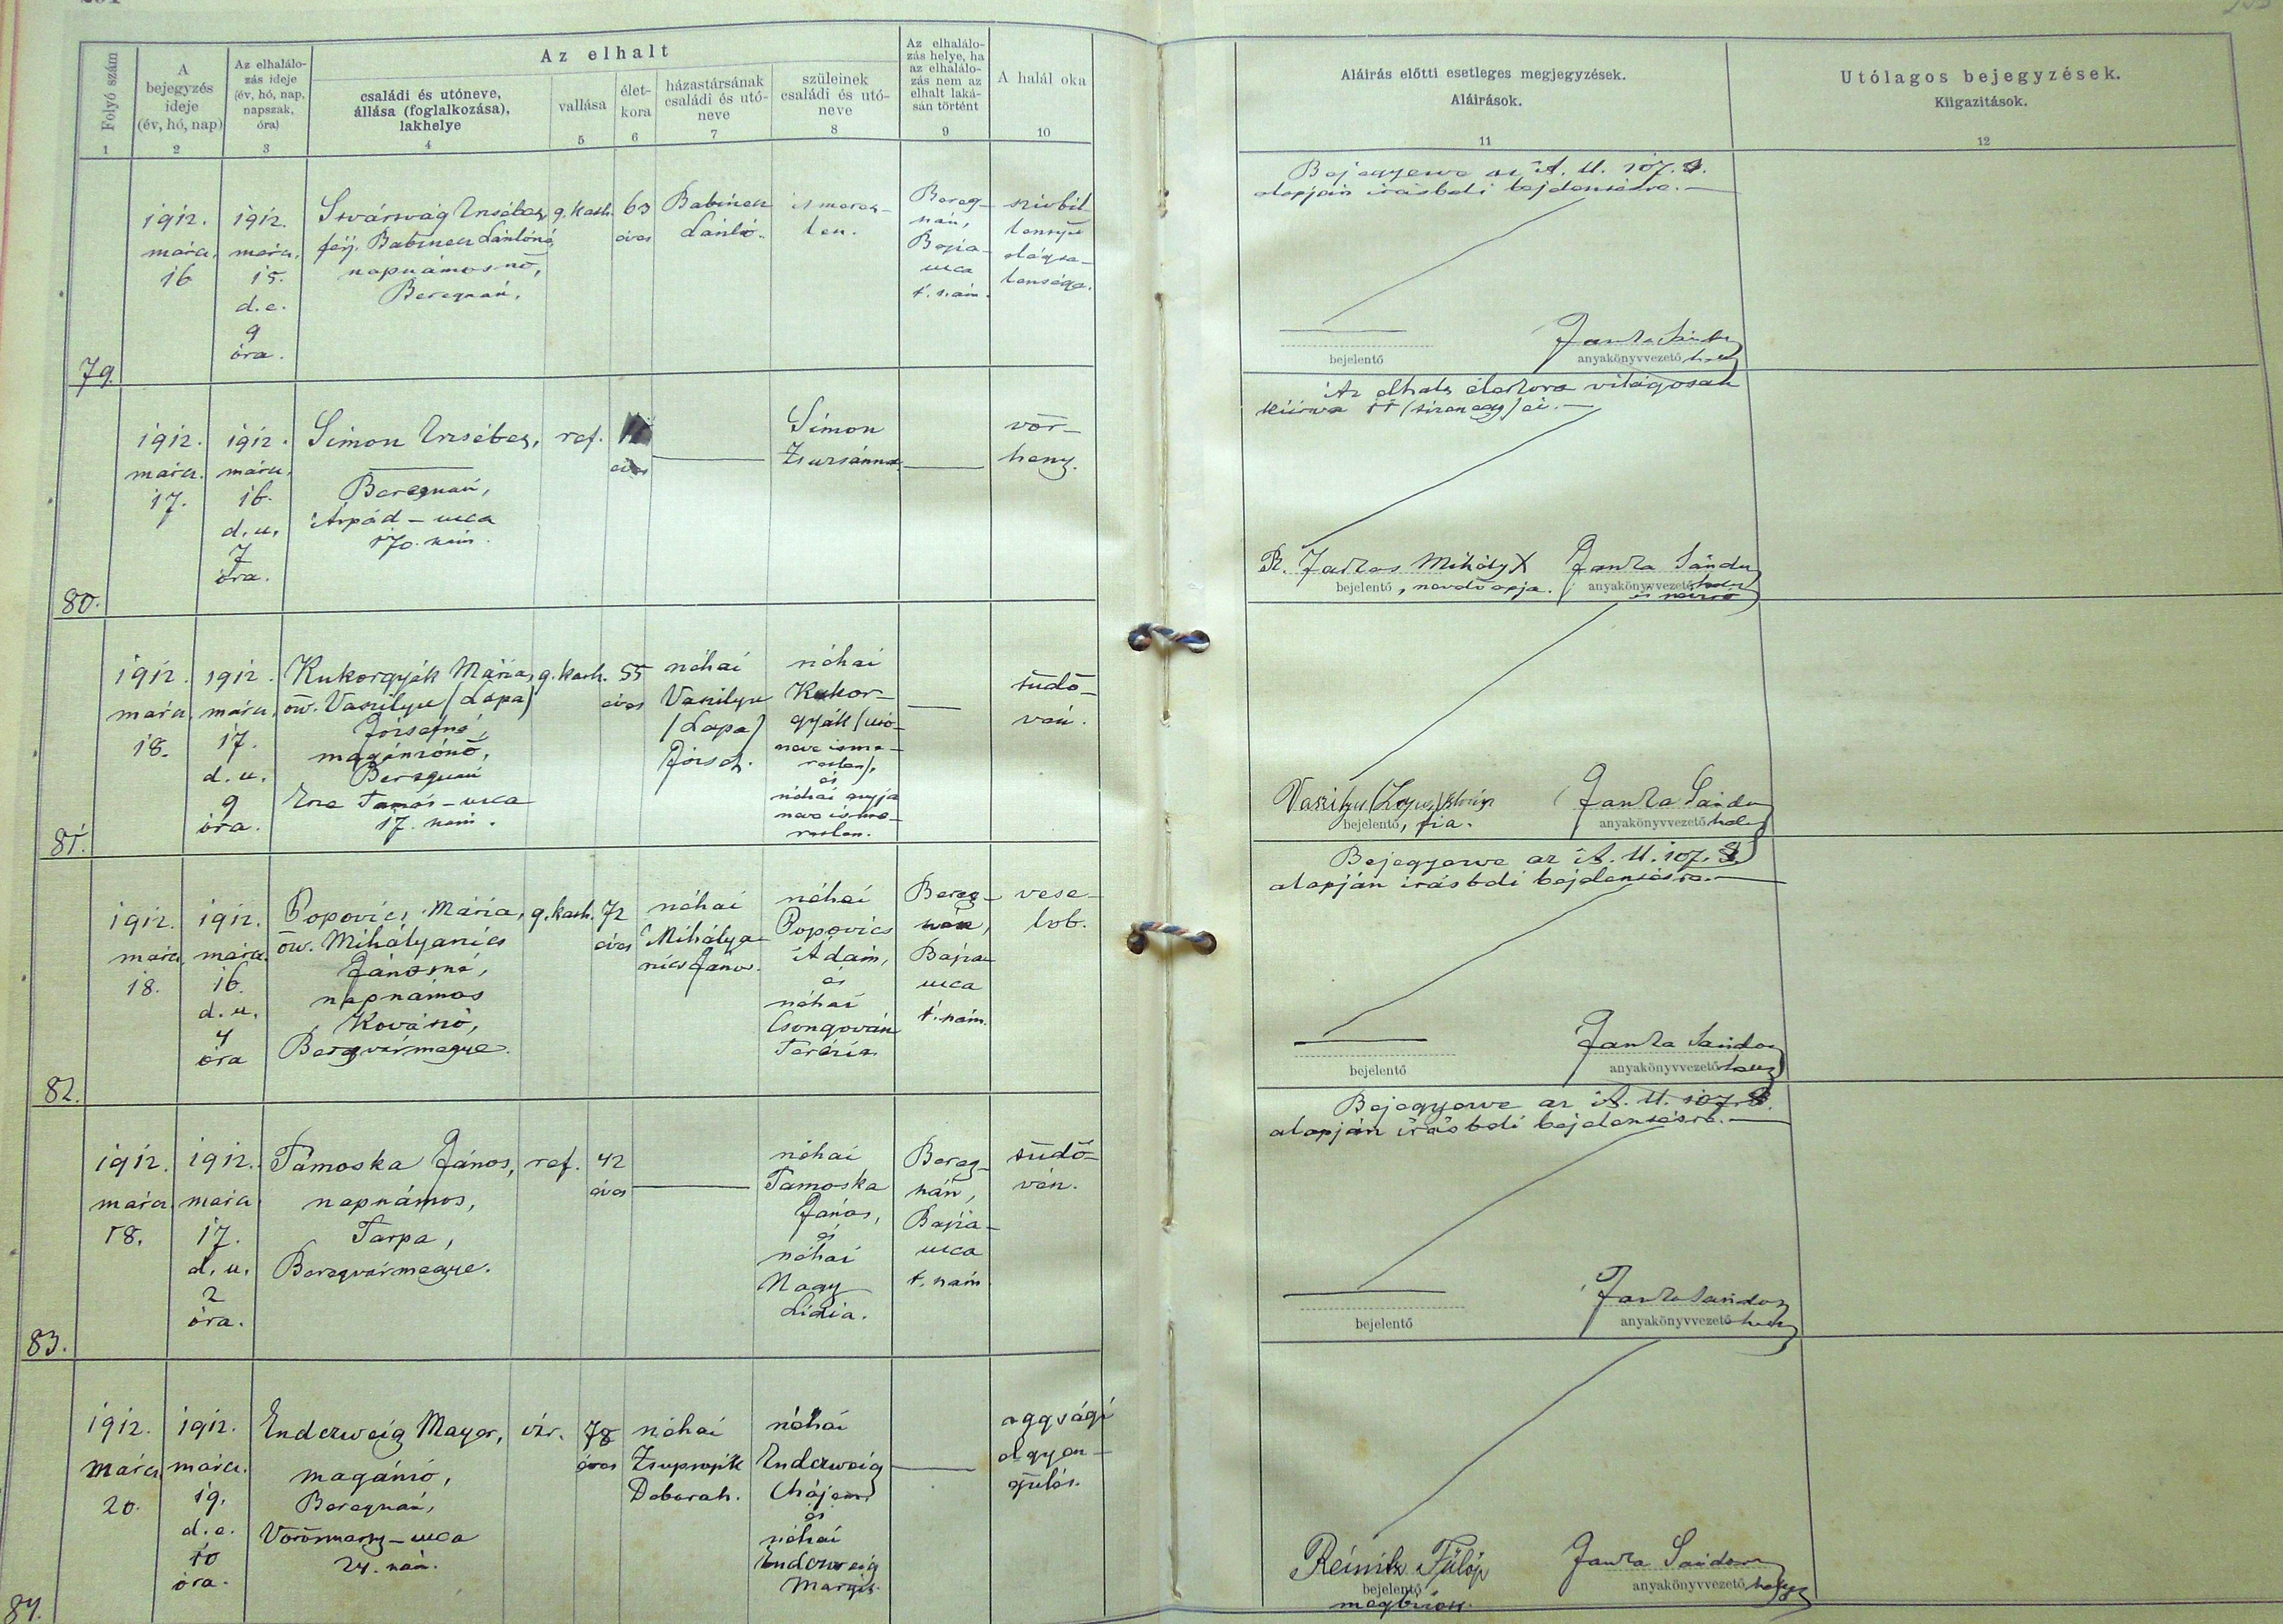 Az elhalt
Folyó szám
A bejegyzés ideje (év, hó, nap)
Az elhalálozás ideje (év, hó, nap, napszak, óra)
családi és utóneve, állása (foglalkozása), lakhelye
vallása
élet-kora
házastársának családi és utóneve
szüleinek családi és utóneve
Az elhalálozás helye, ha az elhalálozás nem az elhalt lakásán történt
A halál oka
Aláírás előtti esetleges megjegyzések.
Aláírások.
Utólagos bejegyzések.
Kiigazítások.
1 2 3 4 5 6 7 8 9 10 11 12
79.
1912. márcz. 16
1912. márcz. 15. d.e. 9 óra.
Erzsébet,
férj. Babinecz Lászlóné,
napszámosnő,
Beregszász.
g. kath.
63 éves
Babinecz László.
ismeretlen.
Beregszász, Bajza-utca 1. szám.
szívbillentyű elégtelensége.
Bejegyezve az A. U. 107. §.
alapján írásbeli bejelentésre.
bejelentő
Janka Sándor
anyakönyvvezető hely.
80.
1912. márcz. 17.
1912. márcz. 16. d.u. 7 óra.
Simon Erzsébet,
Beregszász,
Árpád-utca
170. szám.
ref.
éves
Simon Zsuzsánna
vörheny.
Az elhalt életkora világosan
kiírva 11 (tizenegy) év.
R. Farkas Mihály X
bejelentő, nevelőapja.
Janka Sándor
anyakönyvvezető hely.
és névíró
81.
1912. márcz. 18.
1912. márcz. 17. d.u. 9 óra.
Kukorgyák Mária,
özv. Vaszilyu (Lapa)
Józsefné,
magánzónő,
Beregszász
Tamás-utca
17. szám.
g. kath.
55 éves
néhai Vaszilyu (Lapa) József.
néhai Kukorgyák (utóneve ismeretlen), és néhai anyja neve ismeretlen.
tüdővész.
Vaszilyu
bejelentő, fia.
Janka Sándor
anyakönyvvezető hely.
82.
1912. márcz. 18.
1912. márcz. 16. d.u. 4 óra
Popovics Mária,
özv. Mihályanics
Jánosné,
napszámos
Kovászó,
Beregvármegye.
g. kath.
72 éves
néhai Mihályanics János.
néhai Popovics Ádám, és néhai Csongován Terézia.
Beregszász, Bajza-utca 1. szám.
veselob.
Bejegyezve az A. U. 107. §.
alapján írásbeli bejelentésre.
bejelentő
Janka Sándor
anyakönyvvezető hely.
83.
1912. márcz. 18.
1912. márcz. 17. d.u. 2 óra.
Tamoska János,
napszámos,
Tarpa,
Beregvármegye.
ref.
42 éves
néhai Tamoska János, és néhai Nagy Lidia.
Beregszász, Bajza-utca 1. szám
tüdővész.
Bejegyezve az A. U. 107. §.
alapján írásbeli bejelentésre.
bejelentő
Janka Sándor
anyakönyvvezető hely.
84.
1912. márcz. 20.
1912. márcz. 19. d.e. 10 óra.
Enderweig Mayer,
magánzó,
Beregszász,
Vörösmarty-utca
24. szám.
izr.
78 éves
néhai Zsupnyik Deborah.
néhai Enderweig Chájem és néhai Enderweig Margit.
aggsági elgyengülés.
Reinitz Fülöp
bejelentő
megbízott.
Janka Sándor
anyakönyvvezető hely.